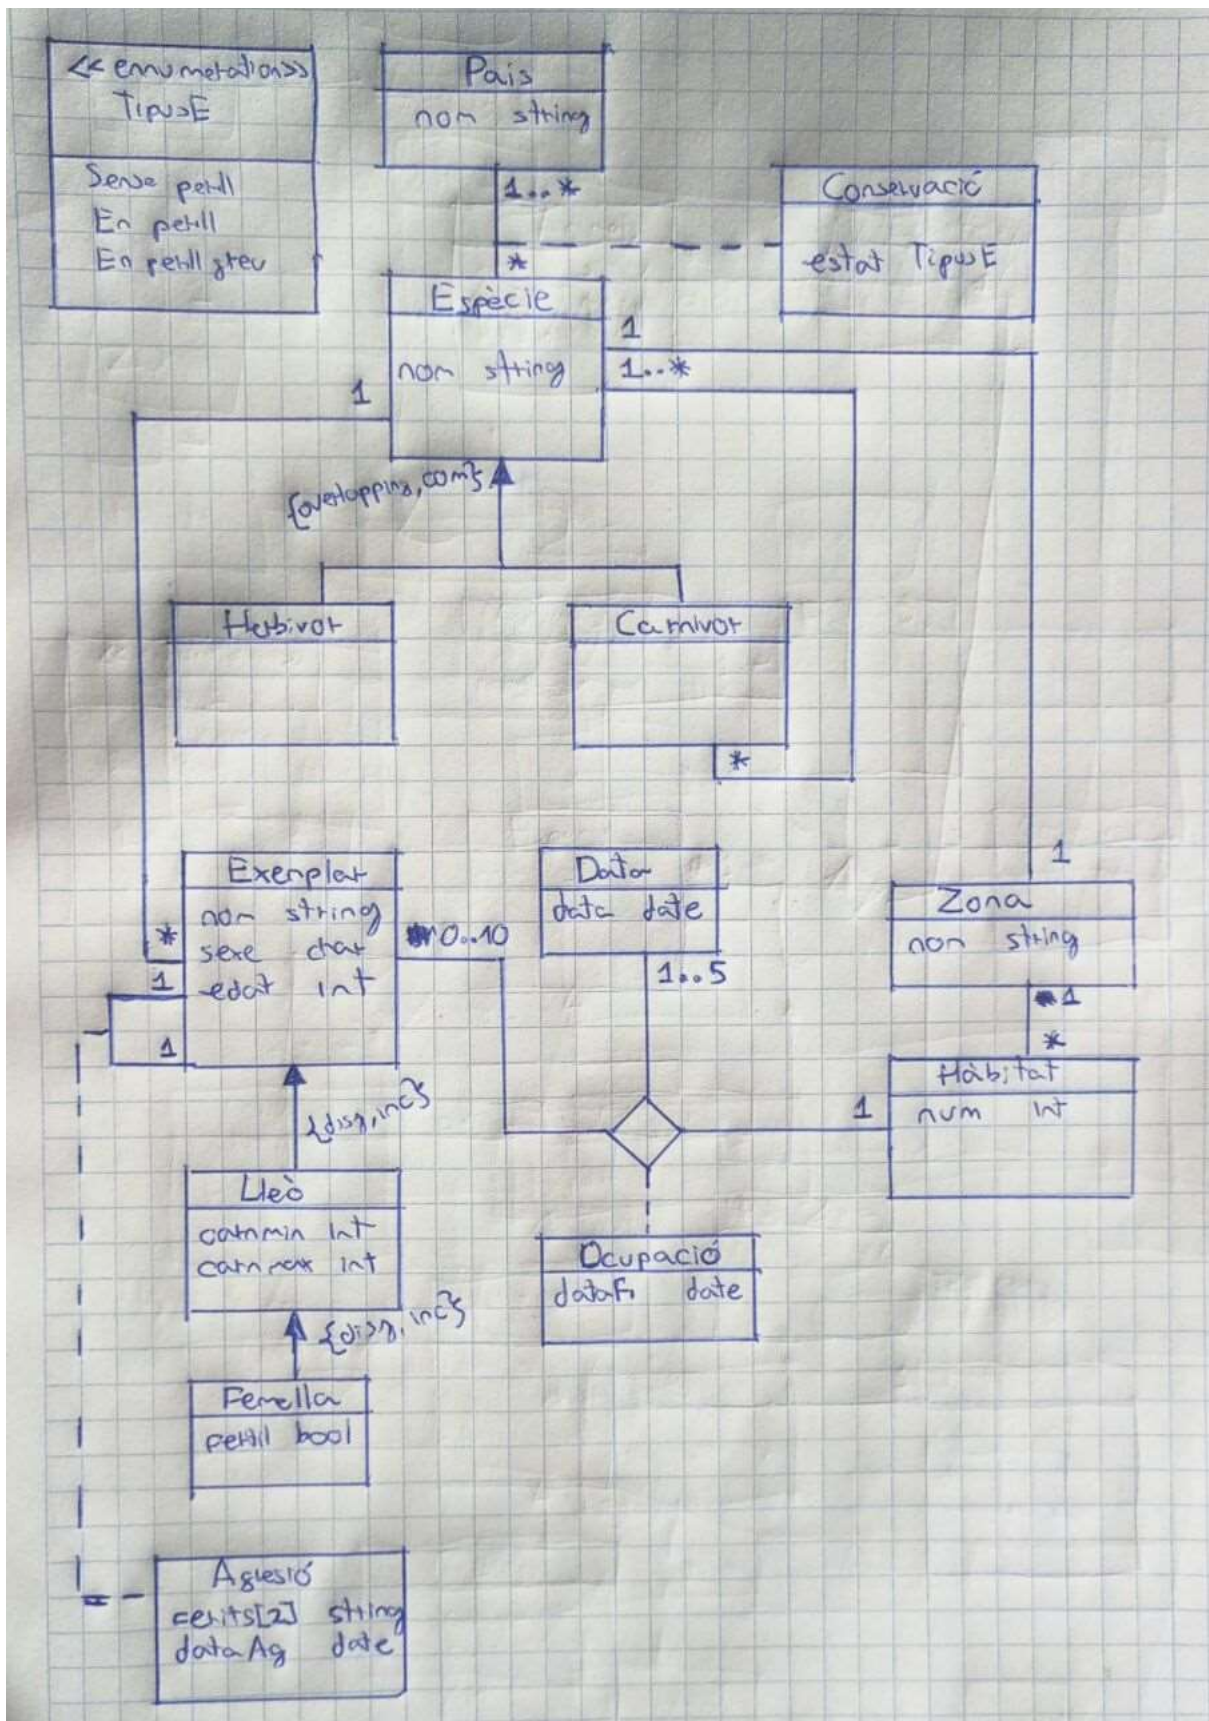 << ennumeration>>
TipusE
Sense perill
En perill
En perill greu
País
nom string
1..*
*
Conservació
estat TipusE
Espècie
nom string
1
1..*
1
{overlapping, com}
Herbivor
Carnivor
*
Exemplar
nom string
sexe char
edat int
*
1
1
0..10
Data
data date
1..5
1
Zona
nom string
1
*
Hàbitat
num int
1
{disj, inc}
Lleò
carnmin int
carnmax int
{disj, inc}
Femella
fertil bool
Ocupació
dataFi date
Agresió
ferits[2] string
dataAg date